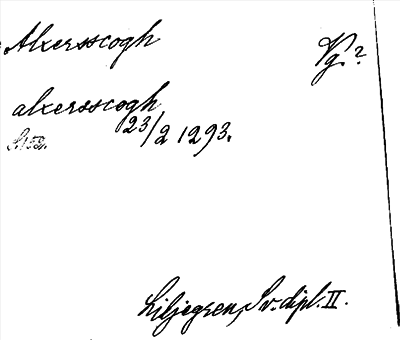 Alxersscogh Vg.?
alxersscogh
23/2 1293.
Liljegren, Sv. dipl. II.